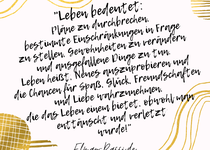 "Leben bedeutet:
Pläne zu durchbrechen,
bestimmte Einschränkungen in Frage
zu stellen, Gewohnheiten zu verändern
und ausgefallene Dinge zu tun.
Leben heißt, Neues auszuprobieren und
die Chancen für Spaß, Glück, Freundschaften
und Liebe wahrzunehmen,
die das Leben einem bietet, obwohl man
enttäuscht und verletzt
wurde!"